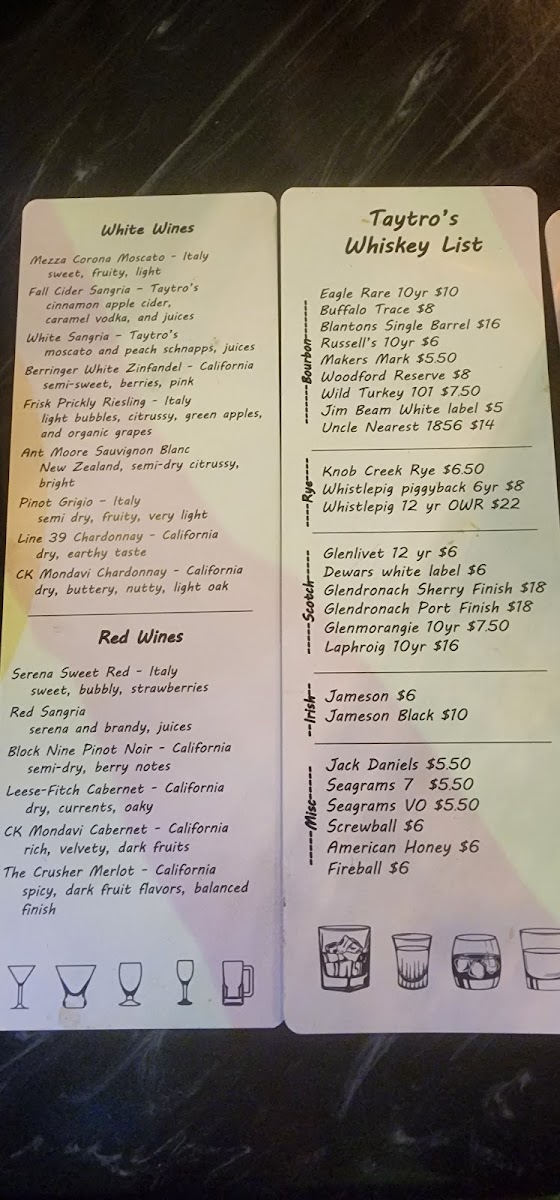 White Wines
Mezza Corona Moscato - Italy
sweet, fruity, light
Fall Cider Sangria - Taytro's
cinnamon apple cider,
caramel vodka, and juices
White Sangria - Taytro's
moscato and peach schnapps, juices
Berringer White Zinfandel - California
semi-sweet, berries, pink
Frisk Prickly Riesling - Italy
light bubbles, citrussy, green apples,
and organic grapes
Ant Moore Sauvignon Blanc
New Zealand, semi-dry citrussy,
bright
Pinot Grigio - Italy
semi dry, fruity, very light
Line 39 Chardonnay - California
dry, earthy taste
CK Mondavi Chardonnay - California
dry, buttery, nutty, light oak
Red Wines
Serena Sweet Red - Italy
sweet, bubbly, strawberries
Red Sangria
serena and brandy, juices
Block Nine Pinot Noir - California
semi-dry, berry notes
Leese-Fitch Cabernet - California
dry, currents, oaky
CK Mondavi Cabernet - California
rich, velvety, dark fruits
The Crusher Merlot - California
spicy, dark fruit flavors, balanced
finish
Taytro's
Whiskey List
Bourbon
Eagle Rare 10yr $10
Buffalo Trace $8
Blantons Single Barrel $16
Russell's 10yr $6
Makers Mark $5.50
Woodford Reserve $8
Wild Turkey 101 $7.50
Jim Beam White label $5
Uncle Nearest 1856 $14
Rye
Knob Creek Rye $6.50
Whistlepig piggyback 6yr $8
Whistlepig 12 yr OWR $22
Scotch
Glenlivet 12 yr $6
Dewars white label $6
Glendronach Sherry Finish $18
Glendronach Port Finish $18
Glenmorangie 10yr $7.50
Laphroig 10yr $16
Irish
Jameson $6
Jameson Black $10
Misc
Jack Daniels $5.50
Seagrams 7 $5.50
Seagrams VO $5.50
Screwball $6
American Honey $6
Fireball $6